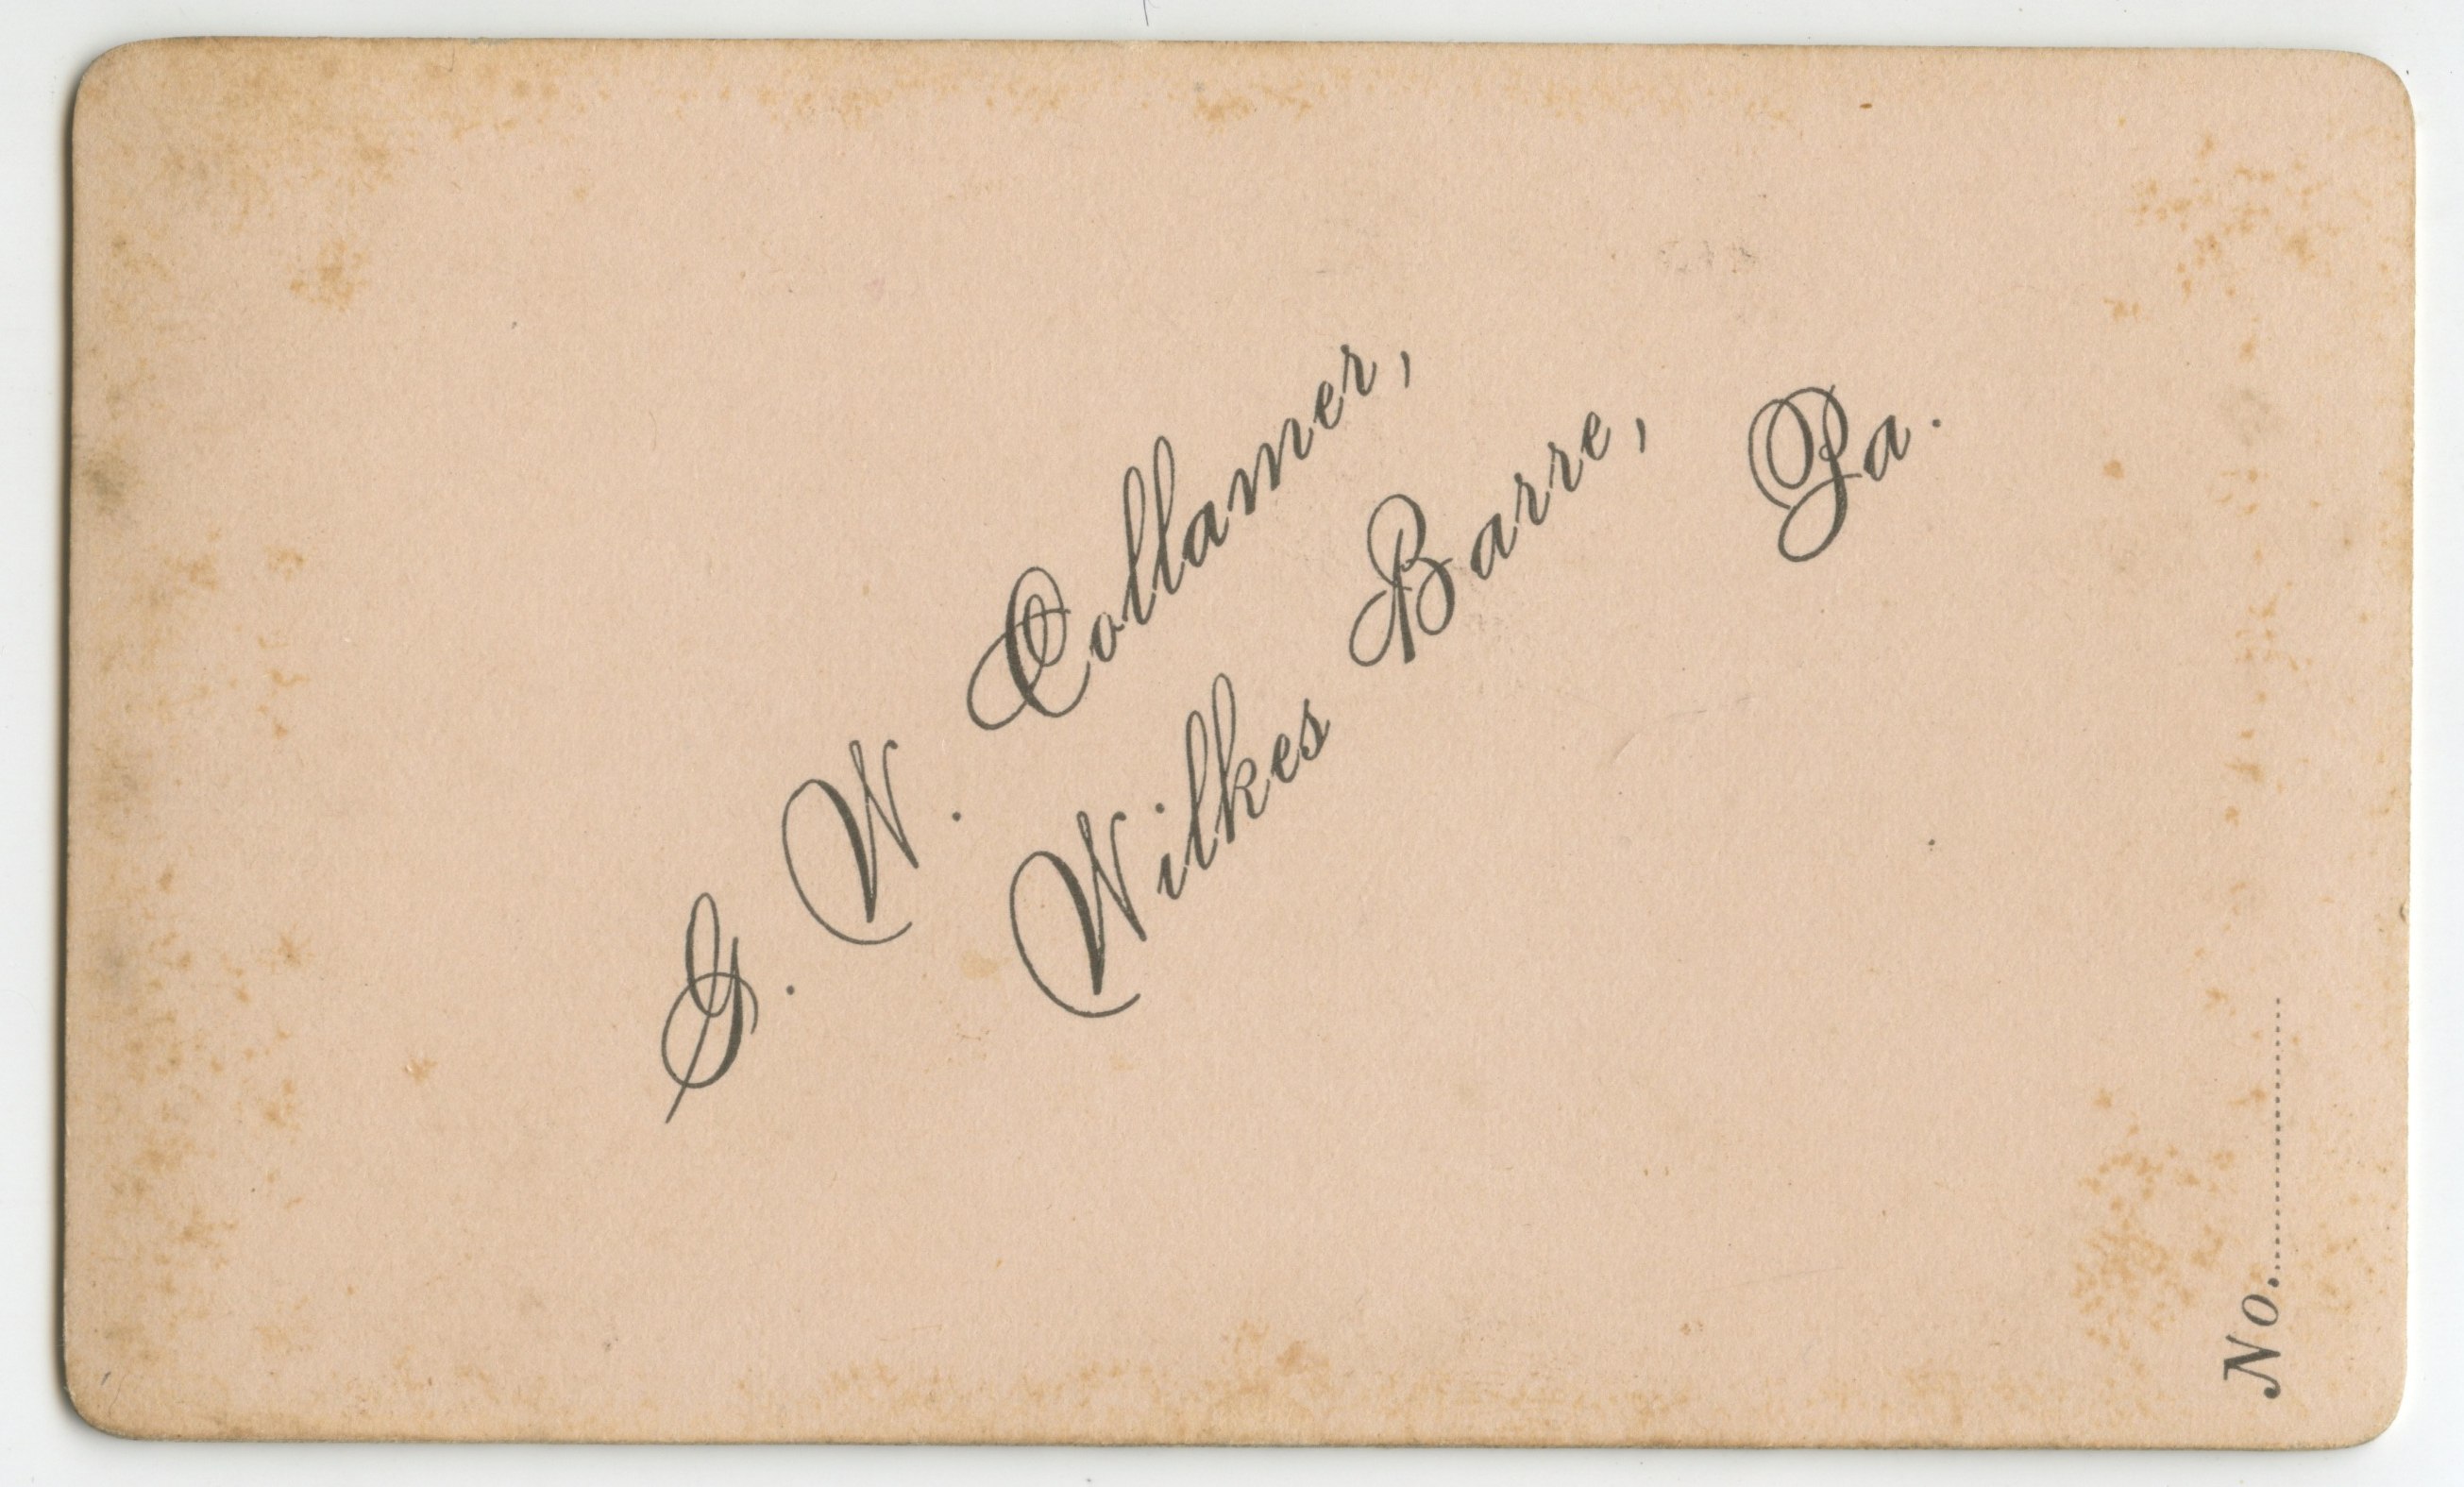 G. W. Collamer,
Wilkes Barre, Pa.
No.